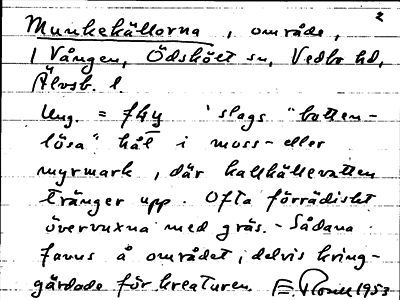 2
Munkekällorna, område,
i Vången, Ödskölt sn, Vedbo hd,
Älvsb. l.
Ung. = fly 'slags "botten-
lösa" hål i moss- eller
myrmark, där kallkällevatten
tränger upp. Ofta förrädiskt
övervuxna med gräs. - Sådana
finns å området, delvis kring-
gärdade för kreaturen. 1953